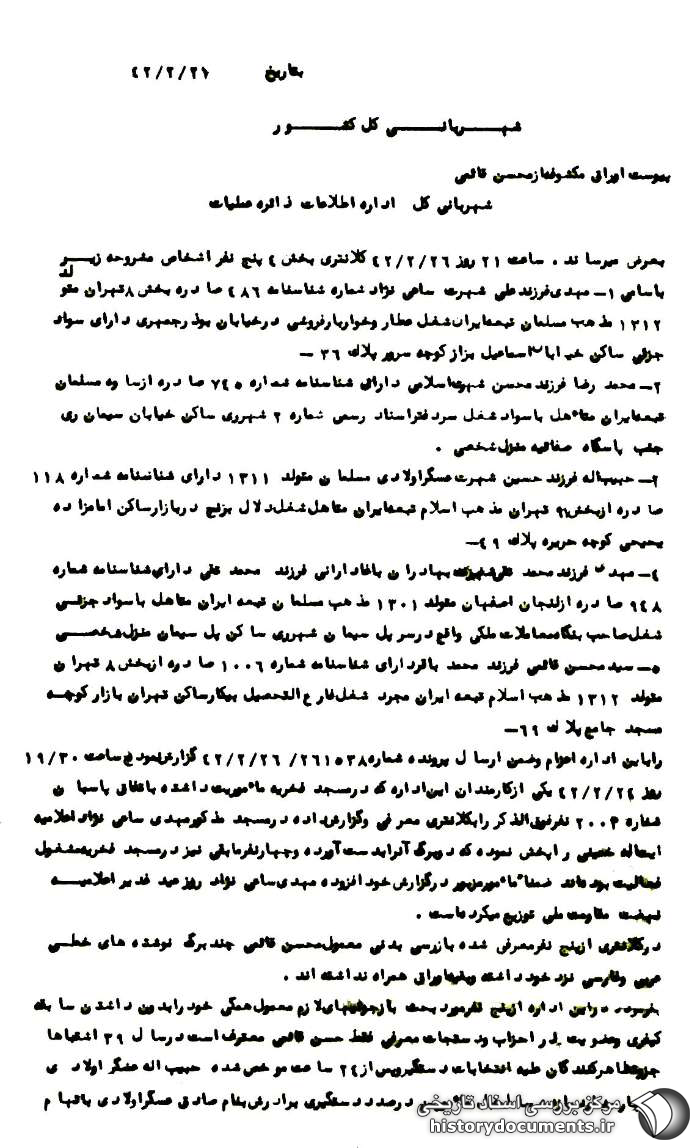 بتاریخ ۴۲/۲/۲۷
شهربانی کل کشور
پیوست اوراق مکشوفه از محسن قائمی
شهربانی کل اداره اطلاعات دائره عملیات
بعرض میرساند . ساعت ۲۱ روز ۴۲/۲/۲۶ کلانتری بخش ۴ پنج نفر اشخاص مشروحه زیر
باسامی ۱- مهدی فرزند علی شهرت ساعی نژاد شماره شناسنامه ۴۸۶ صادره بخش ۸ تهران متولد
۱۳۱۲ مذهب مسلمان تبعه ایران شغل عطار و خواربارفروشی در خیابان بوذرجمهری دارای سواد
جزئی ساکن خیابان اسماعیل بزاز کوچه سرور پلاك ۳۶ -
۲- محمد رضا فرزند محسن شهرت اسلامی دارای شناسنامه شماره ۷۴۵ صادره از ساوه مسلمان
تبعه ایران متاهل باسواد شغل سردفتر اسناد رسمی شماره ۲ شهرری ساکن خیابان سیمان ری
جنب پاسگاه صفائیه منزل شخصی .
۳- حبیب اله فرزند حسین شهرت عسگراولادی مسلمان متولد ۱۳۱۱ دارای شناسنامه شماره ۱۱۸
صادره از بخش تهران مذهب اسلام تبعه ایران متاهل شغل دلال برنج در بازار ساکن امامزاده
یحیی کوچه حریره پلاك ۴۹-
۴- مهدی فرزند محمد تقی شهرت بهادران باغادارانی فرزند محمد تقی دارای شناسنامه شماره
۹۴۸ صادره از لنجان اصفهان متولد ۱۳۰۱ مذهب مسلمان تبعه ایران متاهل باسواد جزئی
شغل صاحب بنگاه معاملات ملکی واقع در سر پل سیمان شهرری ساکن پل سیمان منزل شخصی
۵- سید محسن قائمی فرزند محمد باقر دارای شناسنامه شماره ۱۰۰۶ صادره از بخش ۸ تهران
متولد ۱۳۱۲ مذهب اسلام تبعه ایران مجرد شغل فارغ التحصیل بیکار ساکن تهران بازار کوچه
مسجد جامع پلاك ۶۹-
را باین اداره اعزام وضمن ارسال پرونده شماره ۲۶۱۵۳۸/ ۴۲/۲/۲۶ گزارش نموده ساعت ۱۹/۳۰
روز ۴۲/۲/۲۶ یکی از کارمندان این اداره که در مسجد فخریه ماموریت داشته باتفاق پاسبان
شماره ۲۰۰۴ نفر فوق الذکر را بکلانتری معرفی و گزارش داده در مسجد مذکور مهدی ساعی نژاد اعلامیه
ایت اله خمینی را پخش نموده که دو برگ آنرا بدست آورده و چهار نفر مابقی نیز در مسجد فخریه مشغول
فعالیت بوده اند ضمنا مامور مزبور در گزارش خود افزوده مهدی ساعی نژاد روز عید غدیر اعلامیه
نهضت مقاومت ملی توزیع میکرده است .
در کلانتری از پنج نفر معرفی شده بازرسی بدنی معمول محسن قائمی چند برگ نوشته های خطی
عربی وفارسی نزد خود داشته وبقیه اوراقی همراه نداشته اند .
در این اداره از پنج نفر مورد بحث بازجوئیهای لازم معمول همگی خود را بدون داشتن سابقه
کیفری وعضویت در احزاب ودستجات معرفی فقط حسن قائمی معترف است در سال ۳۹ اشتباها
جزو تظاهرکنندگان علیه انتخابات دستگیر و پس از ۲۴ ساعت مرخص شده حبیب اله عسگراولادی
درصدد دستگیری برادرش بنام صادق عسگراولادی باتهام
مرکز بررسی اسناد تاریخی
historydocuments.ir